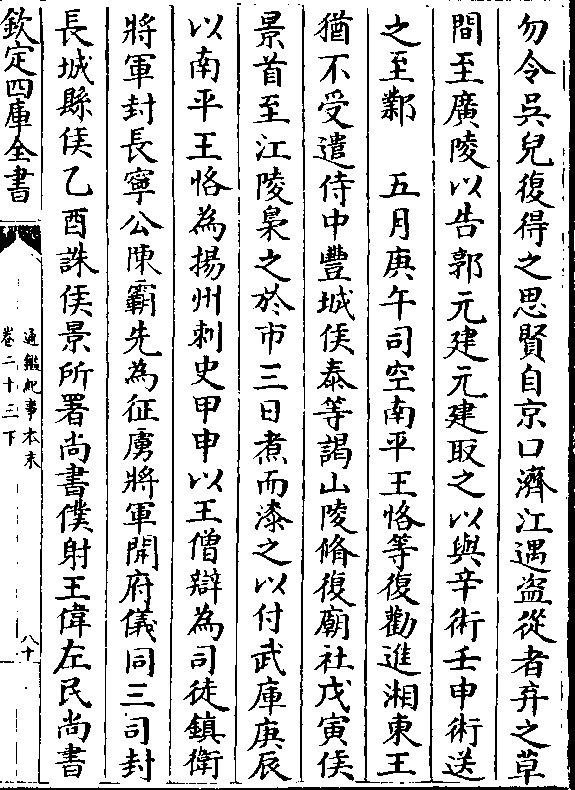 勿令吳兒復得之思賢自京口濟江遇盗從者弃之草
間至廣陵以告郭元建元建取之以與辛術壬申術送
之至鄴　五月庚午司空南平王恪等復勸進湘東王
猶不受遣侍中豐城侯泰等謁山陵脩復廟社戊寅侯
景首至江陵梟之於市三日煮而漆之以付武庫庚辰
以南平王恪為揚州刺史甲申以王僧辯為司徒鎮衛
將軍封長寧公陳霸先為征虜將軍開府儀同三司封
長城縣侯乙酉誅侯景所署尚書僕射王偉左民尚書
欽定四庫全書
通鑑紀事本末
卷二十三下
八十